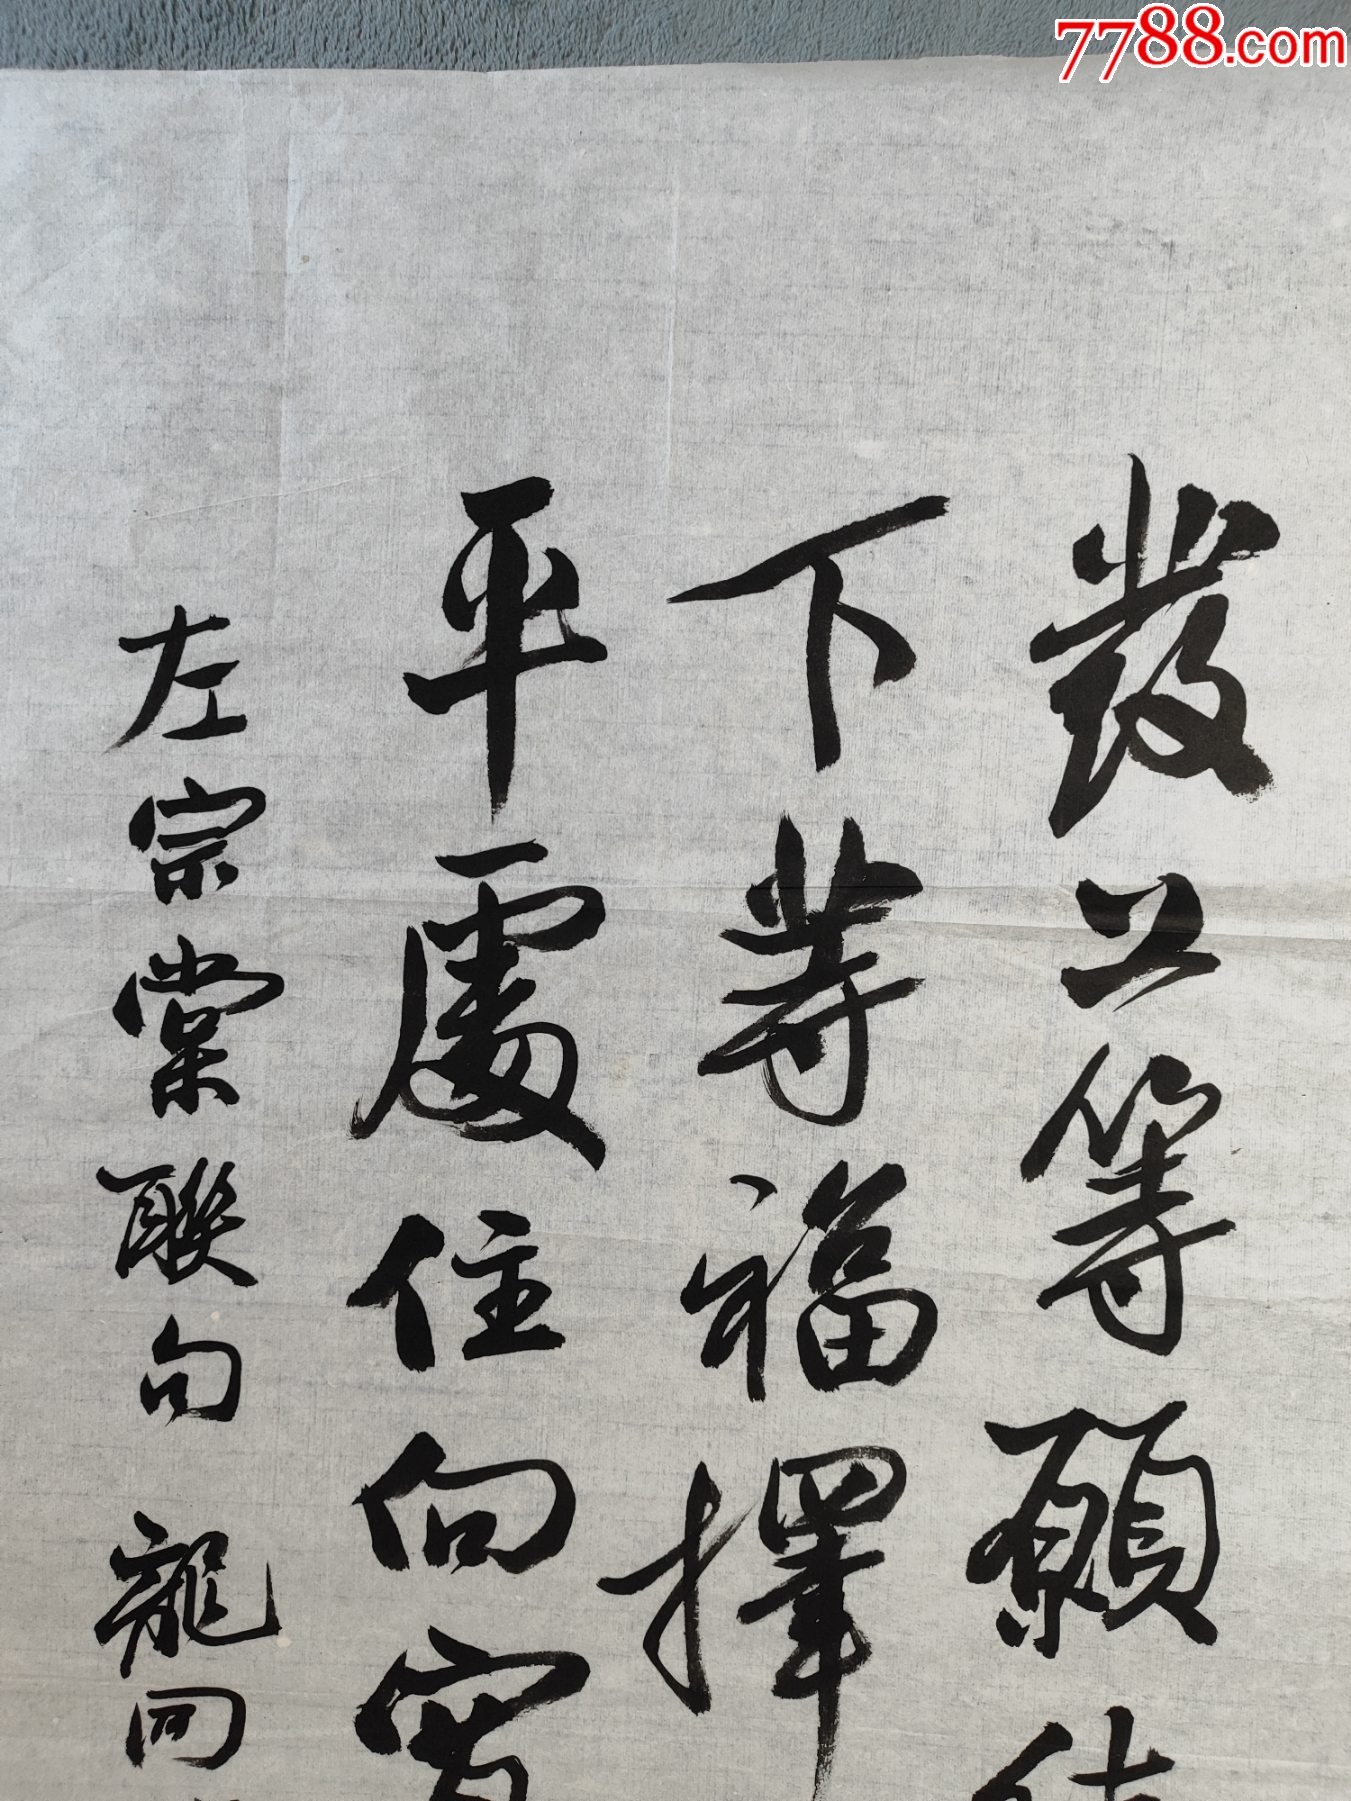 7788.com
發上等願結
下等福擇
平處住向寬
左宗棠聯句 龍四